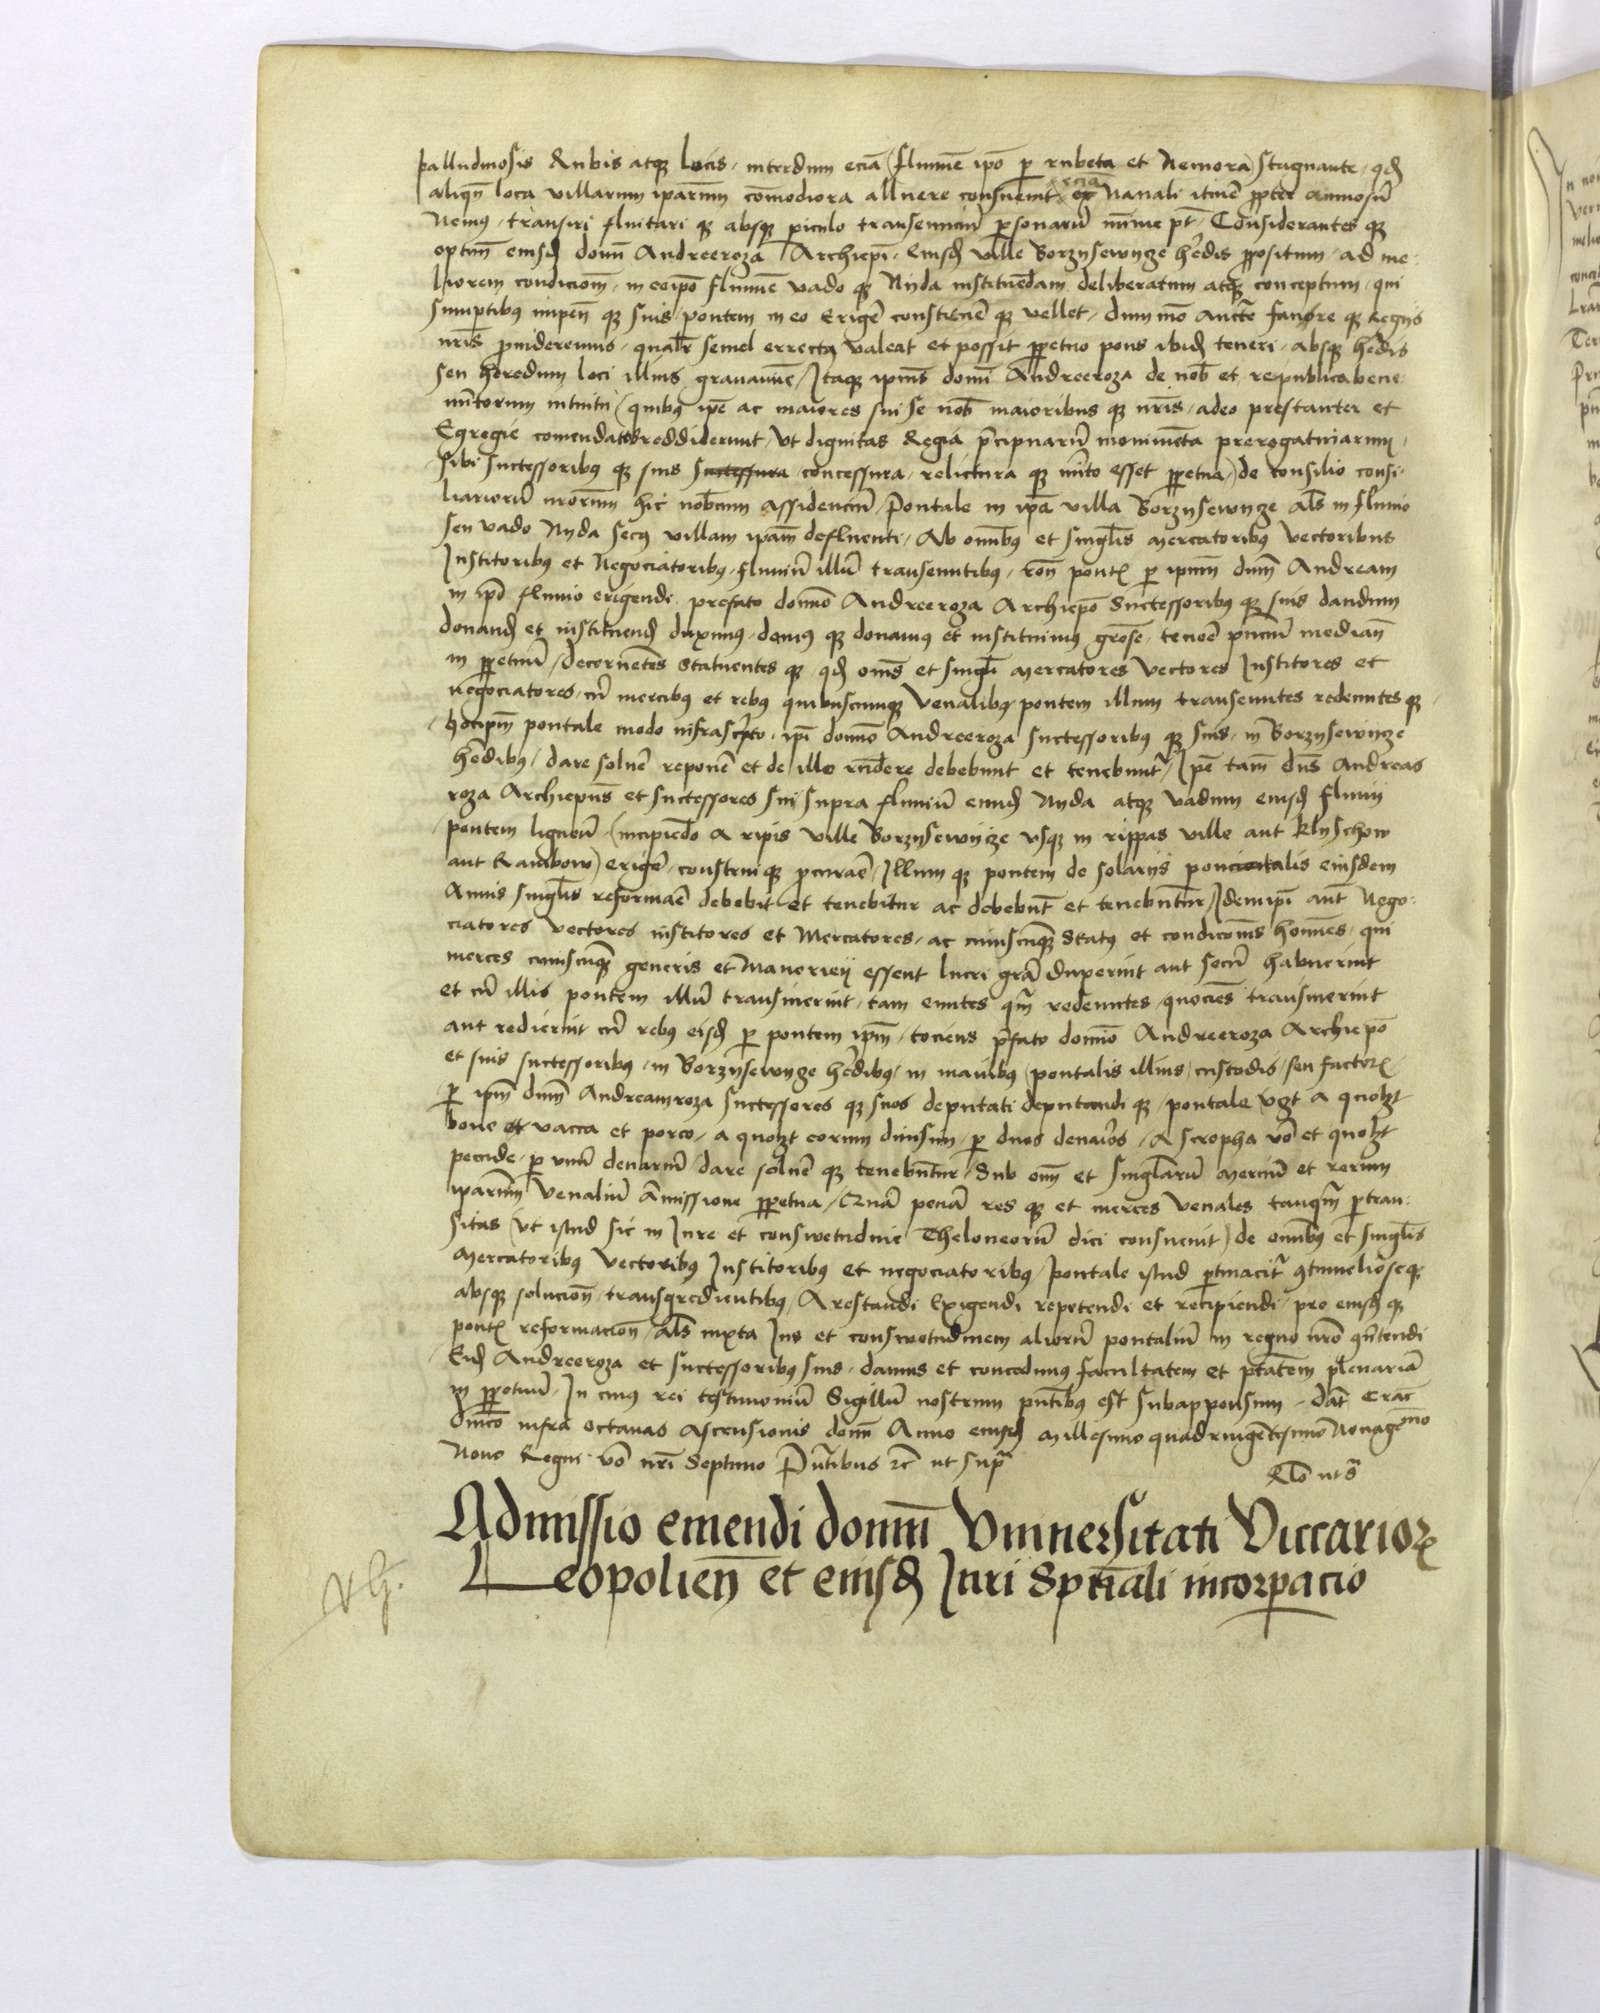 palludinosis Rubis atqz locis, interdum eciā (flumīe ipō p rubeta et Nemora) stagnante, qđ
aliqn̄ loca villarum ip̄arum cōmodiora alluere consuevit ecia Navali itinē ppter
Nemus, transiri fluitari qz absqz piculo transeunciū personarū mīnime pt, Considerantes qz
optim̄ eiusđ domī Andreeroza Archiepī, Eiusđ ville Borzysewycze hēdis ppositum, ad me-
liorem condicionē, in eoip̄o flumīe vado qz Nyda instituēdam deliberatum atqz conceptum, qui
sumptibus impen̄ qz suis, pontem in eo Erigē construē qz vellet, dum mō auctē favore qz Regiis
nr̄is provideremus, qualr̄ semel errectus valeat et possit ppetuo pons ibiđ teneri, absqz hēdis
seu heredum loci illius gravamīe, Itaqz ipīus domī Andreeroza de nob̄ et reipublica bene-
mītorum intuitu (quibus ipē ac maiores sui se nob̄ maioribus qz nr̄is, adeo prestanter et
Egregie comendatos reddiderunt, Ut dignitas Regia p̄cipuarū monimēta prerogativarum,
sibi successoribus qz suis successura concessura, relictura qz mīto esset ppetua) de consilio consi-
liariorū nr̄orum hic nob̄cum assidenciū, Pontale in ip̄a villa Borzysewycze als̄ in fluvio
seu vado Nyda secus villam ip̄am defluenti, Ab omībus et singl̄is mercatoribus Vectoribus
Institoribus et Negociatoribus, fluviū illū transeuntibus, rōn pontis p ipum dnm̄ Andream
in ip̄o fluvio erigende, prefato domīo Andreeroza Archiepō Successoribus qz suis dandum
donanđ et instituenđ duximus, damus qz donamus et instituimus grōse, tenoē pn̄ciū median̄
in ppetuū, decernētes statuentes qz qđ om̄s et singl̄i mercatores Vectores Institores et
negociatores, cū mercibus et rebus quibuscumqz Venalibus pontem illum transeuntes redeuntes qz,
hocipm̄ pontale modo infrascripto, ip̄i domīo Andreeroza successoribus qz suis, in Borzysewycze
hēdibus, dare solvē reponē et de illo rn̄dere debebunt et tenebuntr̄, Ipē tam̄ dn̄s Andreas
roza Archiepūs et successores sui supra fluviū eiusđ Nyda atqz vadum eiusđ fluvii
pontem ligneū (incipiēdo a ripis ville Borzysewycze usqz in rippas ville aut Klyschow
aut Rambow) erigē, construi qz pcuraē, Illum qz pontem de solariis pontalis eiusdem
Annis singl̄is reformaē debebit et tenebitur ac debebūt et tenebūtur, Idemipī aut̄ Nego-
ciatores vectores institores et Mercatores, ac cuiuscūqz Status et condicōnis homīes, qui
merces cuiuscūqz generis et Maneriey essent lucri grā duxerint aut secū habuerint
et cū illis pontem illū transiverint, tam euntes qm̄ redeuntes, quocies transiverint
aut redierint cū rebus eisđ p pontem ipm̄, tociens p̄fato domīo Andreeroza Archiepō
et suis successoribus, in Borzysewycze hēdibus, in manibus pontalis illius, custodis, seu factoris
p ipm̄ dnm̄ Andreamroza successores qz suos deputati deputandi qz, pontale vzt a quolzt
bove et vacca et porco, a quolzt eorum divisim, p duos denarios, A scropha vō et quolzt
pecude, p unū denariū, dare solvē qz tenebūtur, Sub om̄ et singl̄arū Merciū et rerum
ip̄arum Venaliū Amissione ppetua, Quā penā res qz et merces venales tanqm̄ ptran-
sitas (ut istud sic in Iure et conswetudine Theloneorū dici consuevit) de omībus et singl̄is
mercatoribus Vectoribus Institoribus et negociatoribus, pontale istud ptinacit̄ ꝯtumelioseqz
absqz solucion̄ transgredientibus, Arestandi Exigendi repetendi et recipiendi, pro eiusđ qz
pontis reformacion̄, als̄ iuxta Ius et conswetudinem aliorū pontaliū in regno nr̄o
Eiđ Andreeroza et successoribus suis, damus et concedimus facultatem et ptātem plenariā
in ppetuū, In cuius rei testimoniū Sigillū nostrum pn̄tibus est subappensum, Dat̄ Crac̄
dnīco infra octavas ascensionis domī Anno eiusđ millesimo quadringētesimo Nonagemo
Nono Regni vō nr̄i Septimo Pn̄tibus zc̄ ut supra
Rlō ut s̄
Admissio emendi domum Universitati Viccariorum
Leopolien̄ et eiusđ Iuri Spūali incorpacio